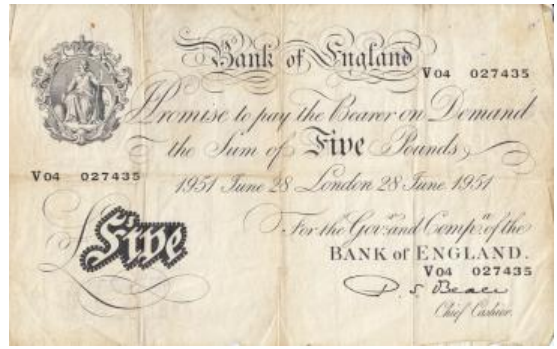 Bank of England
V04 027435
I Promise to pay the Bearer on Demand
the Sum of Five Pounds
V04 027435
1951 June 28 London 28 June 1951
For the Govr. and Compa. of the
BANK of ENGLAND.
V04 027435
£Five
P. S. Beale
Chief Cashier.